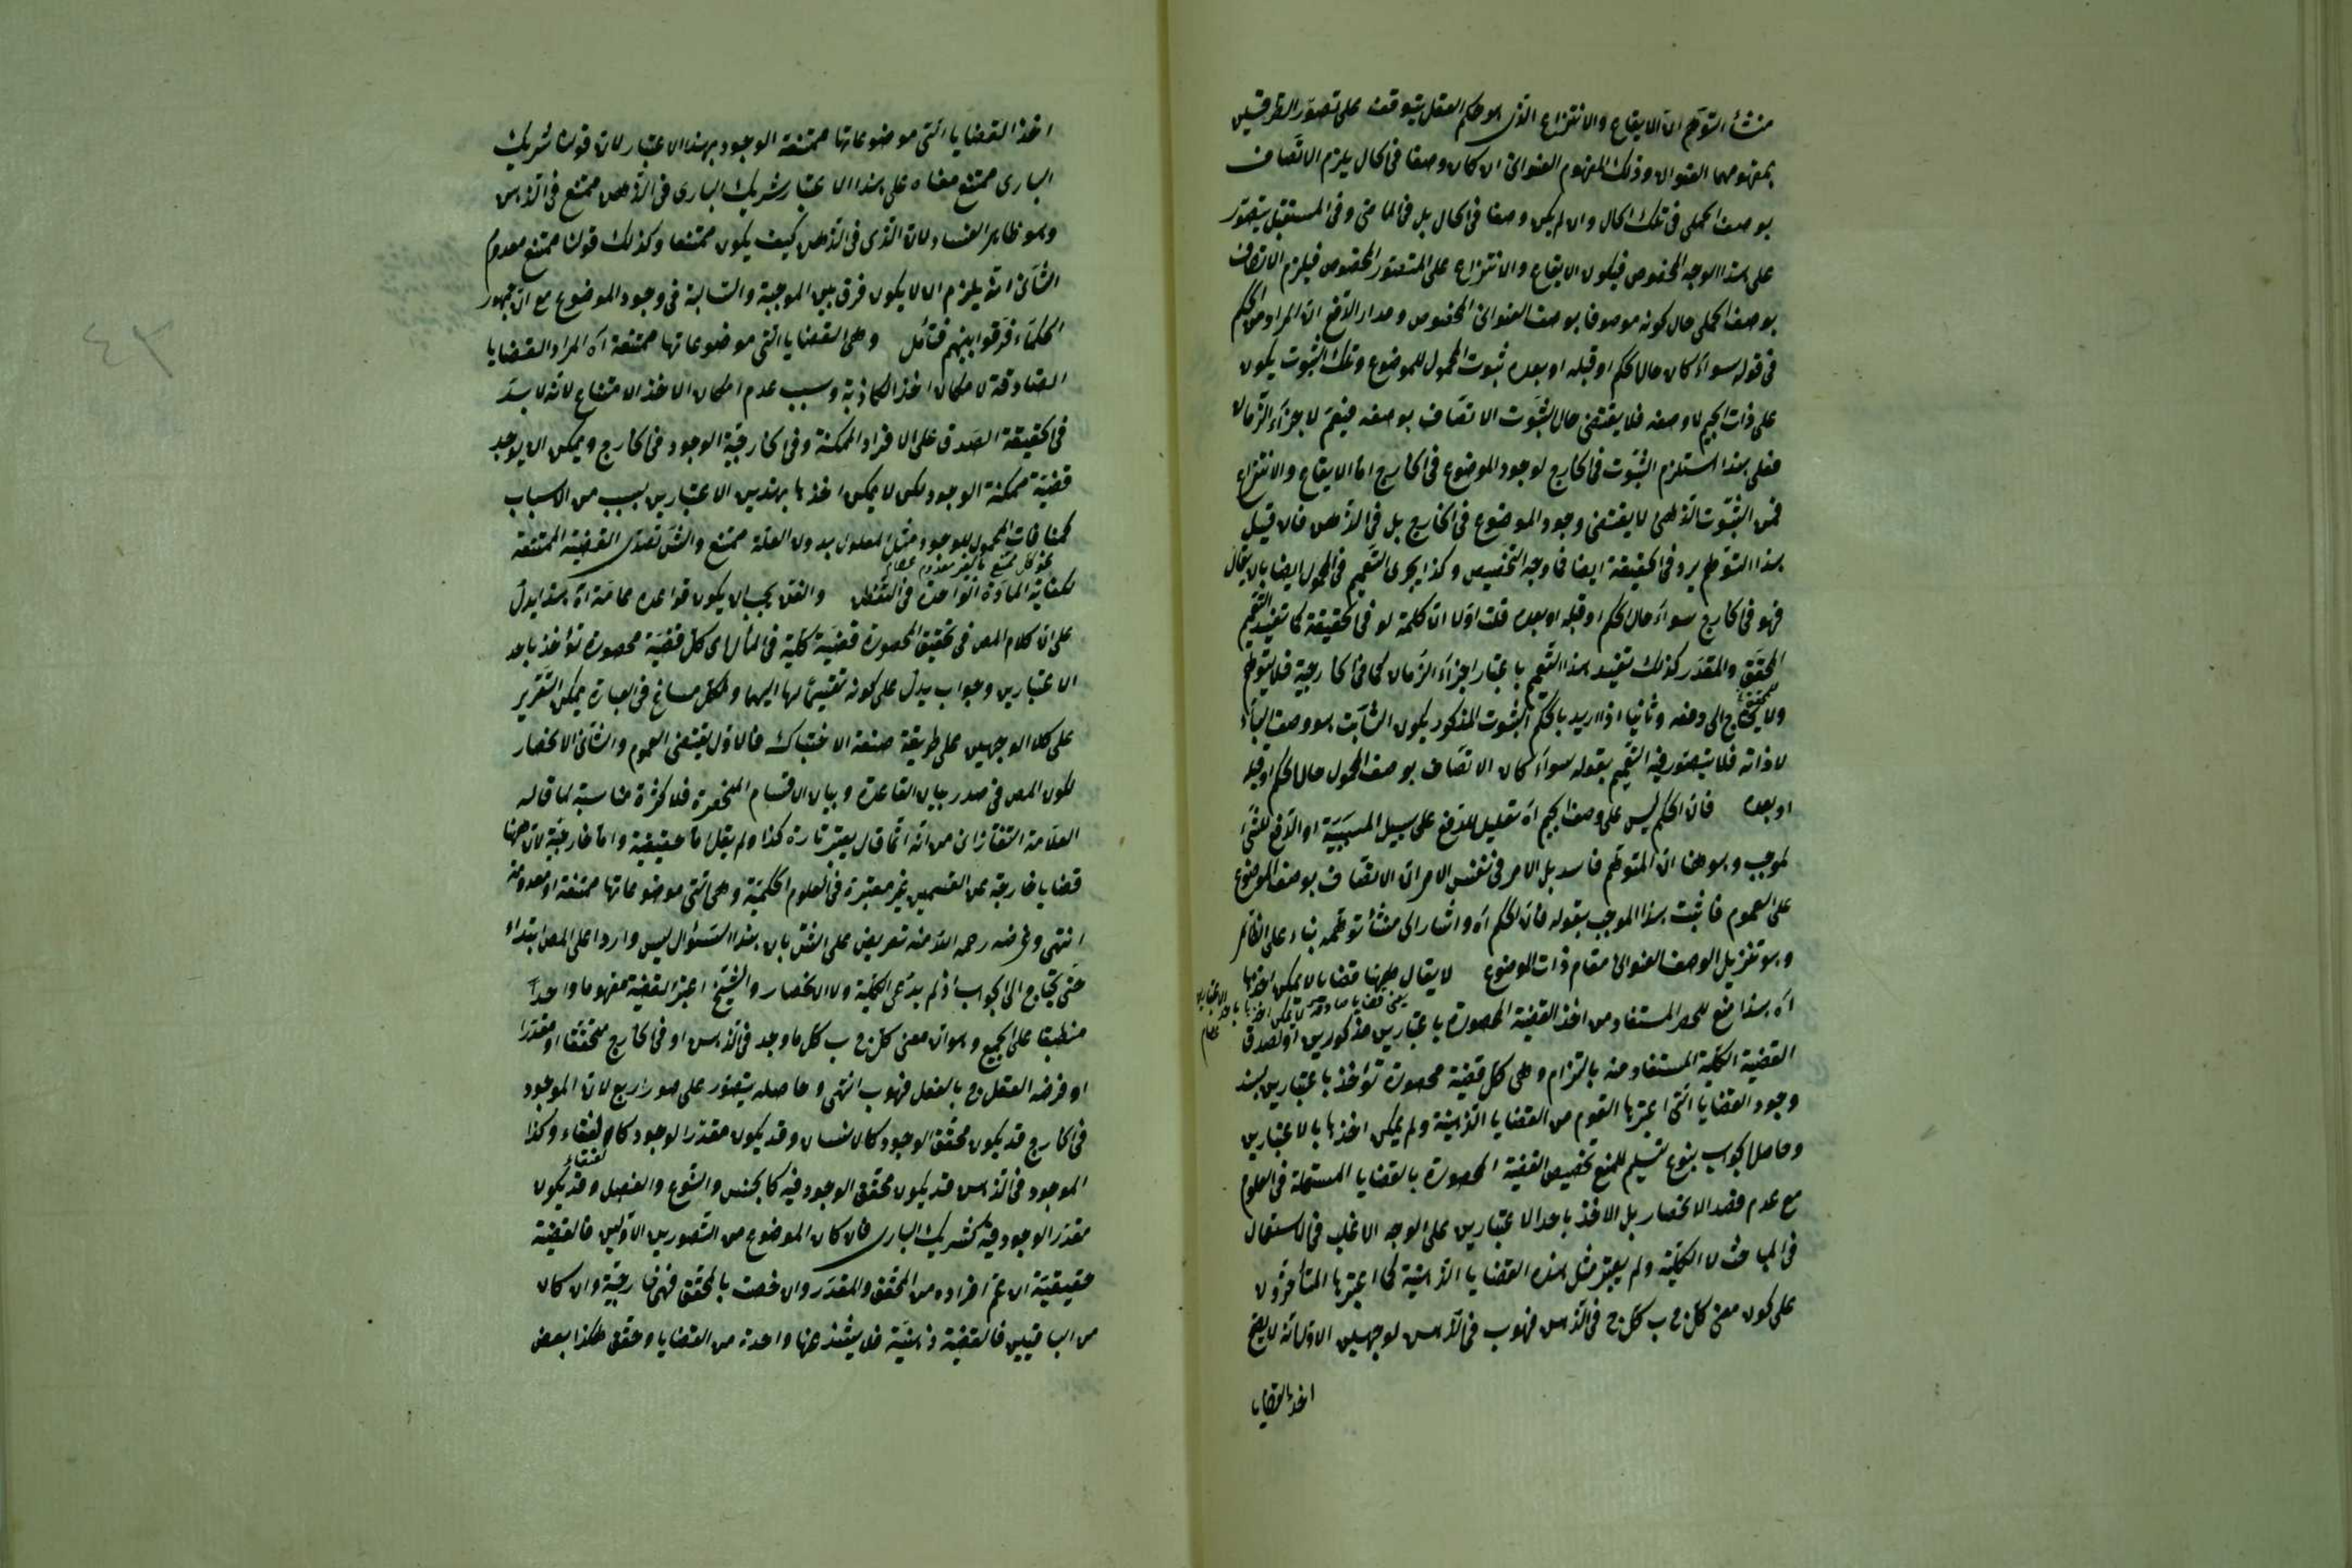 منشأ التوهّم انّ الايقاع والانتزاع الذى هو حكم العقل يتوقف على تصوّر الطرفين
بمفهومهما العنوانى وذلك المفهوم العنوانى ان كان وصفا فى الحال يلزم الاتّصاف
بوصف المحلى فى تلك الحال وان لم يكن وصفا فى الحال بل فى الماضى وفى المستقبل يتصوّر
على هذا الوجه المخصوص فيكون الايقاع والانتزاع على المتصوّر المخصوص فيلزم الاتصاف
بوصف المحلى حال كونه موصوفا بوصف العنوانى المخصوص ومدار الدّفع انّ المراد من الحكم
فى قوله سواء كان حال الحكم او قبله او بعده ثبوت المحمول للموضوع وتلك الثبوت يكون
على ذات الجيم لا وصفه فلا يقتضى حال الثبوت الاتصاف بوصفه فيعمّ لاجزاء الزّمان
فعلى هذا استلزم الثبوت فى الخارج لوجود الموضوع فى الخارج امّا الايقاع والانتزاع
فمن الثبوت الذهنى لا يقتضى وجود الموضوع فى الخارج بل فى الذهن فان قيل
هذا التوهّم يرد فى الحقيقة ايضا فما وجه التخصيص وكذا يجرى التّعميم فى المحمول ايضا بان يقال
فهو فى الخارج سواء حال الحكم او قبله او بعده قلت اوّلا انّ كلمة لو فى الحقيقة كما تفيد التّعميم
المحقّق والمقدّر كذلك تفيد هذا التّعميم باعتبار اجزاء الزّمان كما فى الخارجية فلا يتوهّم
ولا يحتاج الى دفعه وثانيا اذا اريد بالحكم الثبوت المذكور يكون الثابت هو وصف الباء
لا ذاته فلا يتصوّر فيه التّعميم بقوله سواء كان الاتّصاف بوصف المحمول حال الحكم او قبله
او بعده فانّ الحكم ليس على وصف الجيم اه تعليل للدفع على سبيل المسببيّة او الدّفع للشئ
لموجب وهو هنا انّ المتوهّم فاسد بل الامر فى نفس الامر انّ الاتّصاف بوصف الموضوع
على العموم فاثبت هذا الموجب بقوله فانّ الحكم اه واشار الى منشأ توهّمه بناء على الظّاهر
وهو تنزيل الوصف العنوانى مقام ذات الموضوع لا يقال ههنا قضايا لا يمكن اخذها
يعنى قضايا صادقة لا يمكن اخذها باحد الاعتبارين عصام
اه هذا منع للحصر المستفاد من اخذ القضية المحصورة باعتبارين مذكورين او لصدق
القضية الكليّة المستفاد منه بالتزام وهى كل قضية محصورة تؤخذ باعتبارين بسند
وجود القضايا التى اعتبرها القوم من القضايا الذّهنيّة ولم يمكن اخذها بالاعتبارين
وحاصل الجواب بنوع تسليم للمنع تخصيص القضية المحصورة بالقضايا المستعملة فى العلوم
مع عدم قصد الانحصار بل الاخذ باحد الاعتبارين على الوجه الاغلب فى الاستعمال
فى المباحث لا الكليّة ولم يعتبر مثل هذه القضايا الذّهنيّة كما اعتبرها المتأخّرون
على كون معنى كل ج ب كل ج فى الذّهن فهو ب فى الذّهن لوجهين الاوّل انّه لا يصح
اخذ القضايا
اخذ القضايا التى موضوعاتها ممتنعة الوجود بهذا الاعتبار لانّ قولنا شريك
البارى ممتنع معناه على هذا الاعتبار شريك البارى فى الذّهن ممتنع فى الذّهن
وهو ظاهر الفساد لانّ الذى فى الذّهن كيف يكون ممتنعا وكذلك قولنا ممتنع معدوم
الثانى انّه يلزم ان لا يكون فرق بين الموجبة والسّالبة فى وجود الموضوع مع انّ جمهور
الحكماء فرّقوا بينهم فتأمل وهى القضايا التى موضوعاتها ممتنعة اه المراد القضايا
الصّادقة لا مكان اخذ الكاذبة وسبب عدم امكان الاخذ الامتناع لانّه لا بدّ
فى الحقيقة الصّدق على الافراد الممكنة وفى الخارجيّة الوجود فى الخارج ويمكن ان يوجد
قضيّة ممكنة الوجود لكن لا يمكن اخذها بهذين الاعتبارين بسبب من الاسباب
كمنافات المحمول للوجود مثل المعلول بدون العلة ممتنع والشّق تعدّى القضية الممتنعة
نحو كل ممتنع معدوم عصام
لكفاية المادّة الواحدة فى النّقض والفن يجب ان يكون قواعده عامّة اه هذا يدل
على انّ كلام المص فى تحقيق المحصورة قضيّة كليّة فى المأل اى كلّ قضيّة محصورة تؤخذ باحد
الاعتبارين وجواب يدل على كونه تقسيما لها اليهما ولكل مساغ فى العبارة يمكن التّقرير
على كلا الوجهين على طريقة صنعة الاحتباك فالاوّل يقتضى العموم والثّانى الانحصار
لكون المص فى صدر بيان القاعدة وبيان الاقسام المنحصرة فلا كثرة مناسبة لما قاله
العلّامة التفتازانى من انّه انّما قال يعتبر تارة كذا ولم يقل امّا حقيقية وامّا خارجيّة لانّ ههنا
قضايا خارجة عن القسمين غير معتبرة فى العلوم الحكميّة وهى التى موضوعاتها ممتنعة او معدومة
انتهى وغرضه رحمه اللّه منه تعريض على الشّق بان هذا السّؤال ليس واردا على المص ابتداء
حتّى يحتاج الى الجواب اذ لم يدّعى الكليّة ولا الانحصار والشّيخ اعتبر القضيّة مفهوما واحدا
منطبقا على الجميع وهو انّ معنى كل ج ب كل ما وجد فى الذّهن او فى الخارج محقّقا او مقدّرا
او فرضه العقل ج بالفعل فهو ب انتهى وحاصله يتصوّر على صور اربع لانّ الموجود
فى الخارج قد يكون محقّق الوجود كالانسان وقد يكون مقدّر الوجود كالعنقاء وكذا
الموجود فى الذّهن قد يكون محقّق الوجود فيه كالجنس والنّوع والفصل وقد يكون
مقدّر الوجود فيه كشريك البارى فان كان الموضوع من التّصورين الاوّلين فالقضيّة
حقيقيّة ان عمّ افراده من المحقّق والمقدّر وان خصّت بالمحقّق فهى خارجيّة وان كان
من الباقيين فالقضيّة ذهنيّة فلا يشذ عنها واحدة من القضايا وحقّق هكذا بعض
٤٣